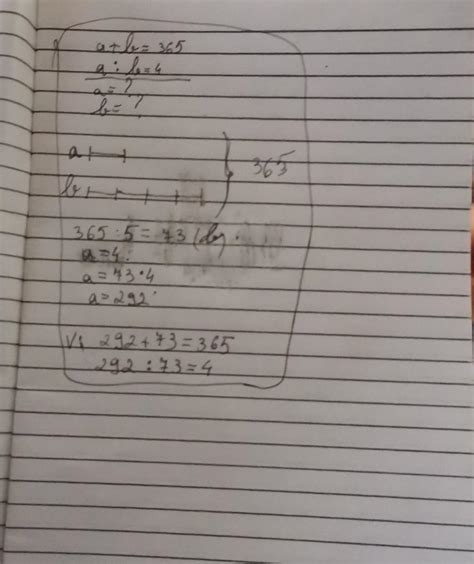 a+b=365
a:b=4
a=?
b=?
a
365
b
365:5=73(b).
a=4.
a=73·4
a=292
V: 292+73=365
292:73=4